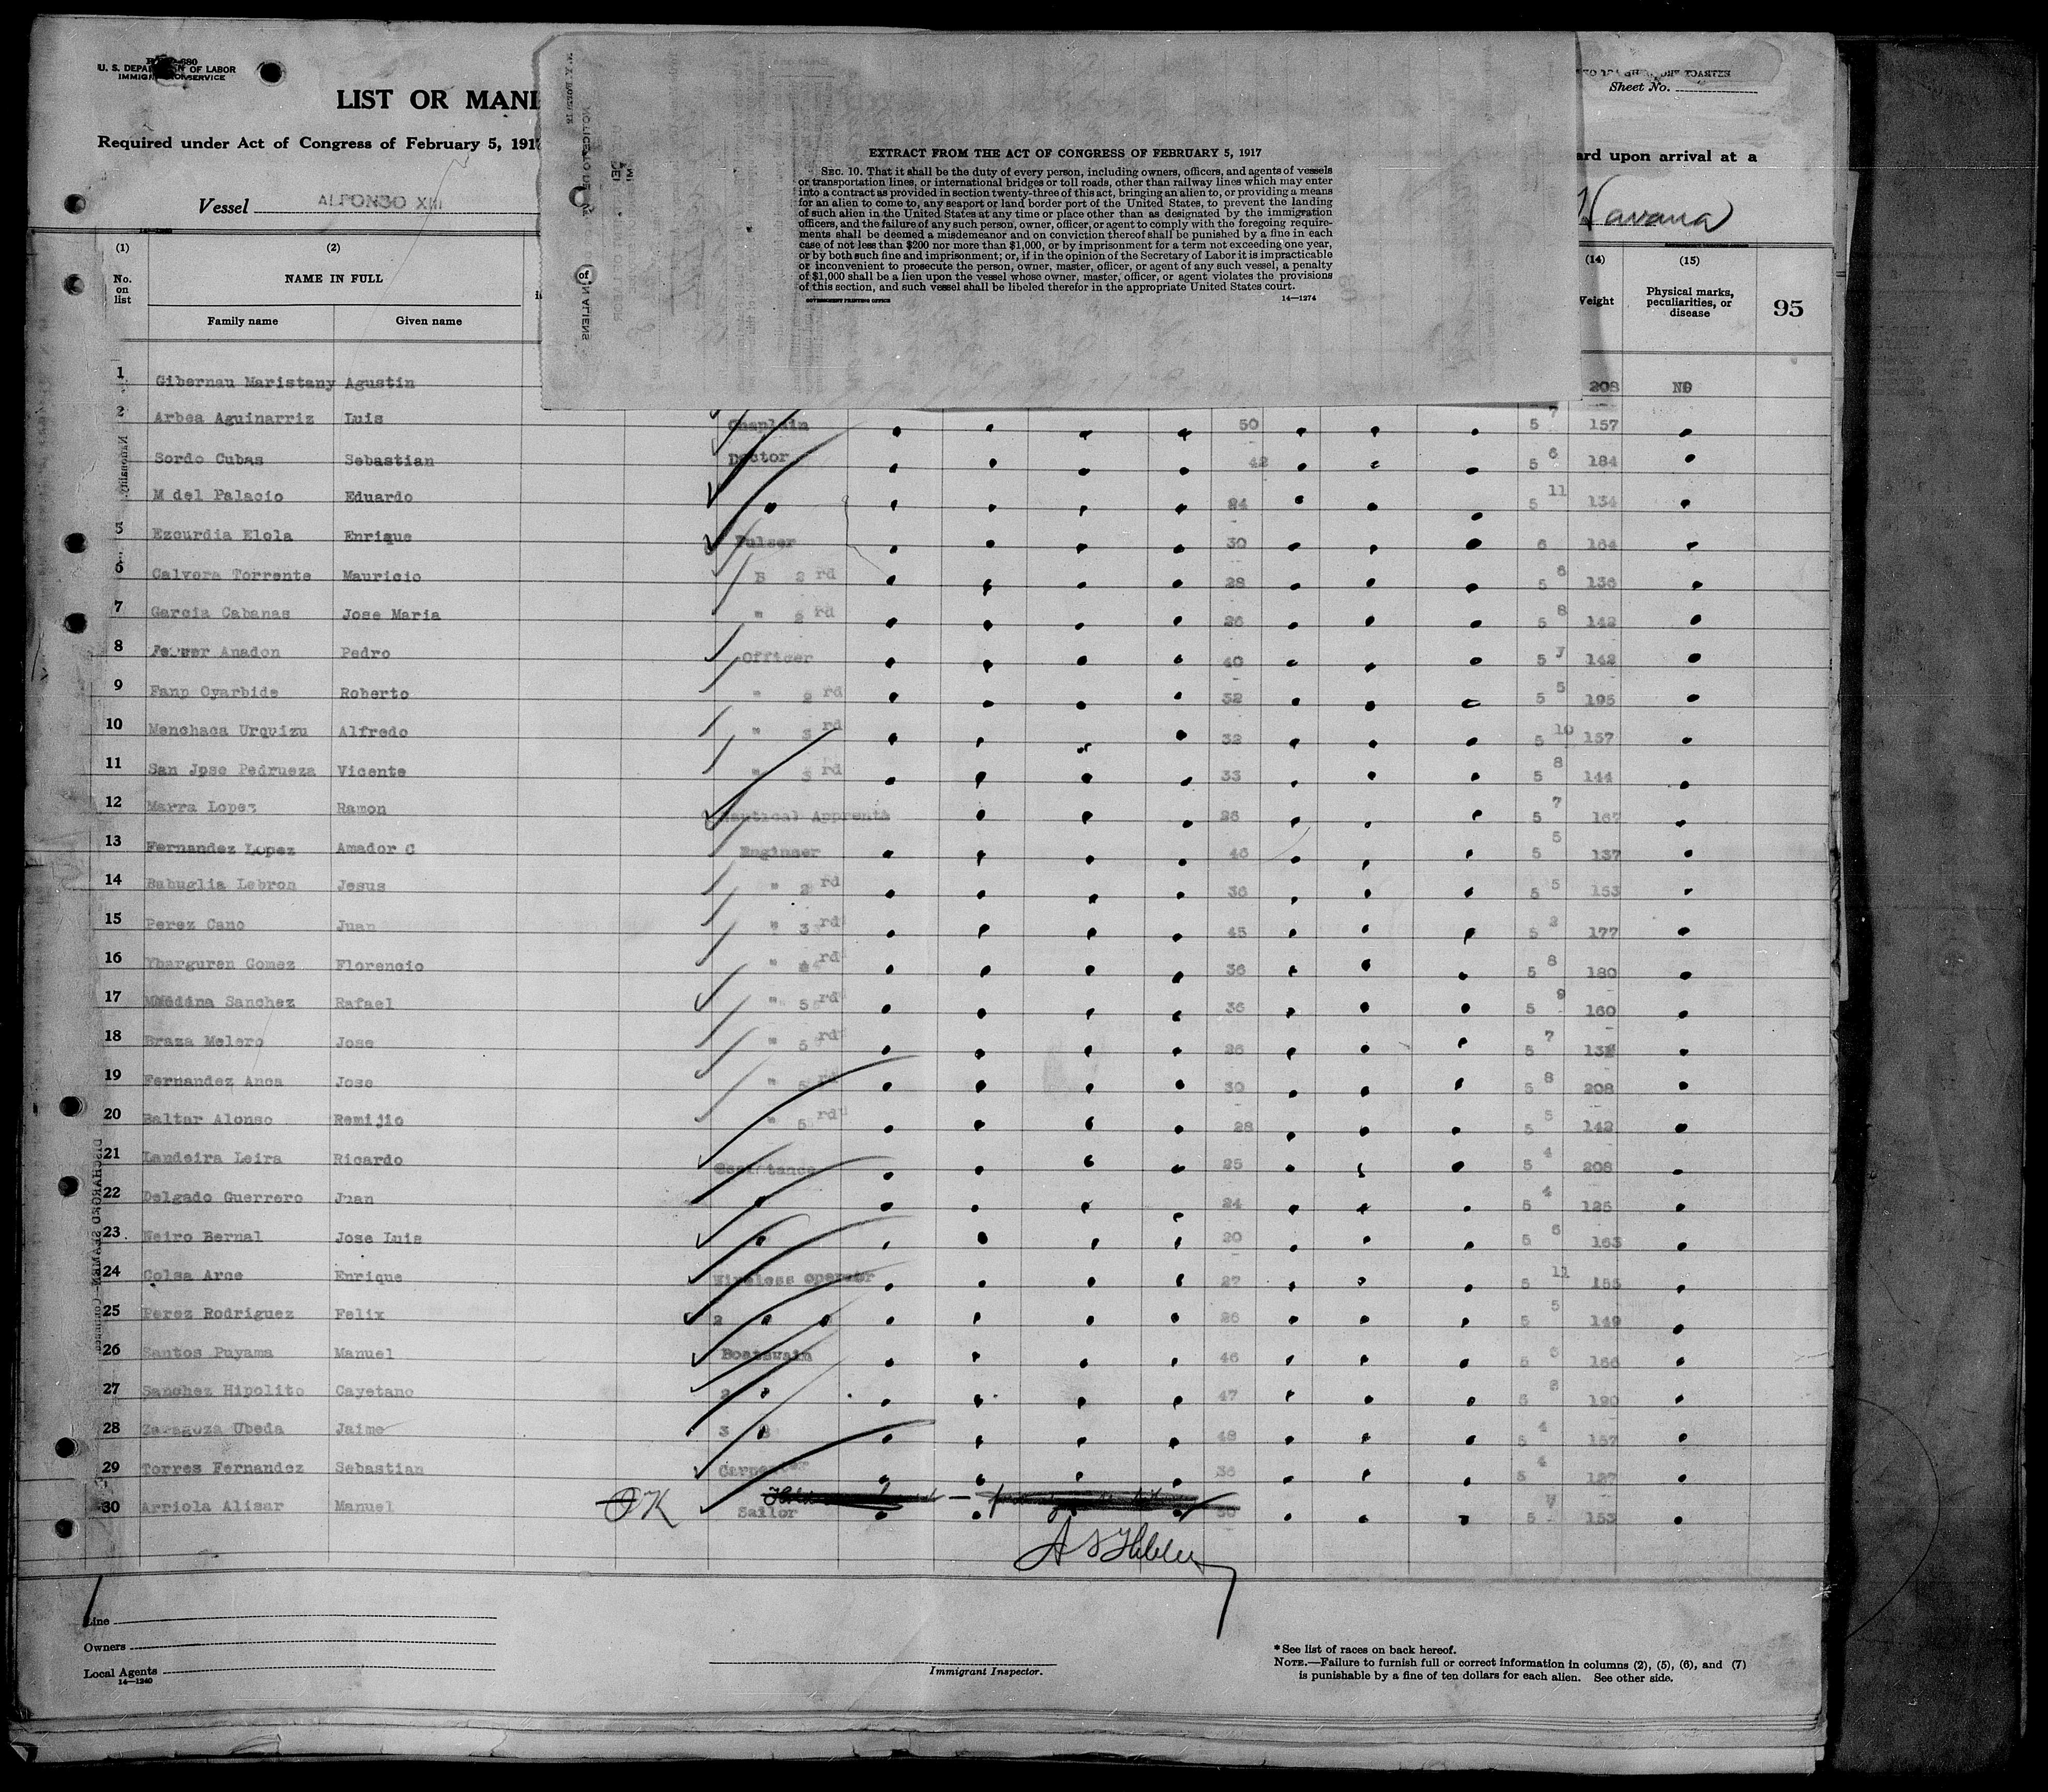 U. S. DEPARTMENT OF LABOR
IMMIGRATION SERVICE
LIST OR MANI
Required under Act of Congress of February 5, 1917
Vessel ALFONSO XIII
EXTRACT FROM THE ACT OF CONGRESS OF FEBRUARY 5, 1917
SEC. 10. That it shall be the duty of every person, including owners, officers, and agents of vessels
or transportation lines, or international bridges or toll roads, other than railway lines which may enter
into a contract as provided in section twenty-three of this act, bringing an alien to, or providing a means
for an alien to come to, any seaport or land border port of the United States, to prevent the landing
of such alien in the United States at any time or place other than as designated by the immigration
officers, and the failure of any such person, owner, officer, or agent to comply with the foregoing require-
ments shall be deemed a misdemeanor and on conviction thereof shall be punished by a fine in each
case of not less than $200 nor more than $1,000, or by imprisonment for a term not exceeding one year,
or by both such fine and imprisonment; or, if in the opinion of the Secretary of Labor it is impracticable
or inconvenient to prosecute the person, owner, master, officer, or agent of any such vessel, a penalty
of $1,000 shall be a lien upon the vessel whose owner, master, officer, or agent violates the provisions
of this section, and such vessel shall be libeled therefor in the appropriate United States court.
GOVERNMENT PRINTING OFFICE 14—1274
Sheet No.
ard upon arrival at a
Havana
(1) (2) (14) (15)
No. on list NAME IN FULL Weight Physical marks, peculiarities, or disease 95
Family name Given name
1 Gibernau Maristany Agustin 208 NO
2 Arbea Aguinarriz Luis Chaplain 50 5 7 157
Sordo Cubas Sebastian Doctor 42 5 6 184
M del Palacio Eduardo 24 5 11 134
5 Ezcurdia Elola Enrique Pulser 30 6 164
6 Calvora Torrente Mauricio B 2 rd 28 5 6 136
7 Garcia Cabanas Jose Maria " 2 rd 26 5 8 142
8 Anadon Pedro Officer 40 5 7 142
9 Fanp Oyarbide Roberto " 2 rd 32 5 5 195
10 Menchaca Urquizu Alfredo " 3 rd 32 5 10 157
11 San Jpse Pedrueza Vicente " 3 rd 33 5 8 144
12 Marra Lopez Ramon Nautical Apprenta 26 5 7 167
13 Fernandez Lopez Amador C Enginser 46 5 5 137
14 Babuglia Lebron Jesus " 2 rd 36 5 5 153
15 Perez Cano Juan " 3 rd 45 5 2 177
16 Ybarguren Gomez Florencio " 4 rd 36 5 8 180
17 Medina Sanchez Rafael " 5 rd 36 5 9 160
18 Braza Melero Jose " 5 rd 26 5 7
19 Fernandez Anca Jose " 5 rd 30 5 8 208
20 Baltar Alonso Remijio " 5 rd 28 5 5 142
21 Landeira Leira Ricardo Assistance 25 5 4 208
22 Delgado Guerrero Juan 24 5 4 125
23 Neiro Bernal Jose Luis 20 5 6 163
24 Colsa Arce Enrique Wireless operator 27 5 11 155
25 Perez Rodriguez Felix 2 26 5 5 149
26 Santos Puyama Manuel Boatswain 46 5 6 166
27 Sanchez Hipolito Cayetano 2 47 5 8 190
28 Zaragoza Ubeda Jaime 3 48 5 4 157
29 Torres Fernandez Sebastian Carpenter 36 5 4 127
30 Arriola Alisar Manuel OK Sailor 50 5 153
Line
Owners
Local Agents
14—1240
Immigrant Inspector.
*See list of races on back hereof.
NOTE.—Failure to furnish full or correct information in columns (2), (5), (6), and (7)
is punishable by a fine of ten dollars for each alien. See other side.